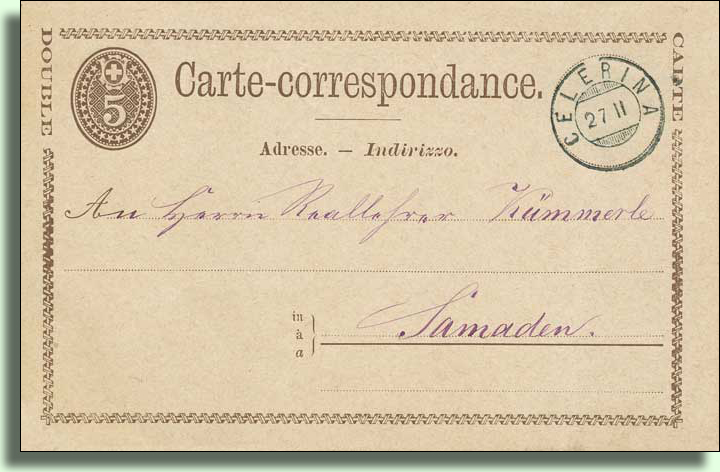 DOUBLE
CARTE
5
Carte-correspondance.
CELERINA
27 II
Adresse. — Indirizzo.
An Herrn Reallehrer Kümmerle
in
à
a
Samaden.